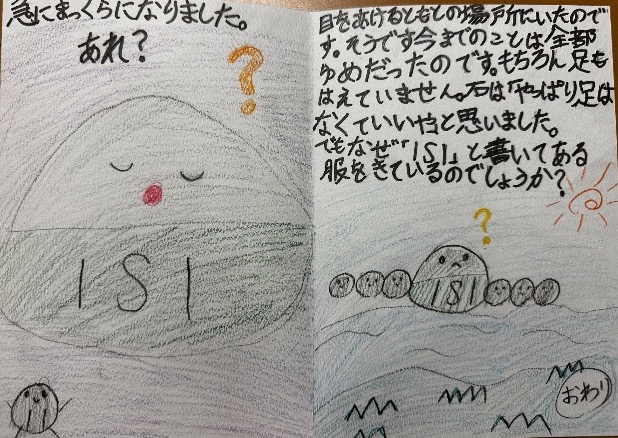 急にまっくらになりました。
あれ?
?
ISI
目をあけるともとの場所にいたので
す。そうです今までのことは全部
ゆめだったのです。もちろん足も
はえていません。石は「やっぱり足は
なくていいや」と思いました。
でもなぜ「ISI」と書いてある
服をきているのでしょうか?
?
ISI
おわり